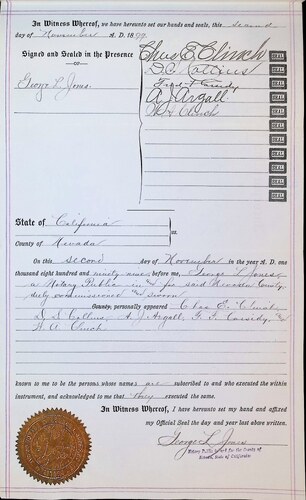 In Witness Whereof, we have hereunto set our hands and seals, this second
day of November A. D. 1899.
Signed and Sealed in the Presence of
George L. Jones
Chas E. Clinch
D. E. Collins
Fred F. Cassidy
A. J. Argall
W. A. Clinch
State of California
ss.
County of Nevada
On this second day of November in the year A. D. one
thousand eight hundred and ninety nine, before me, George L. Jones,
a Notary Public in & for said Nevada County,
duly commissioned & sworn
County, personally appeared Chas E. Clinch,
Collins, A. J. Argall, F. F. Cassidy, &
W. A. Clinch
known to me to be the persons whose names are subscribed to and who executed the within
instrument, and acknowledged to me that they executed the same.
In Witness Whereof, I have hereunto set my hand and affixed
my Official Seal the day and year last above written.
George L. Jones
Notary Public in and for the County of
Nevada, State of California